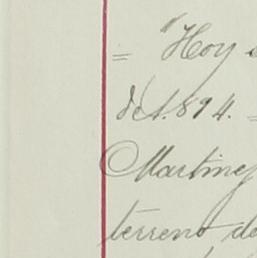 = "Hoy
de 1.894. =
Martinez
terreno de